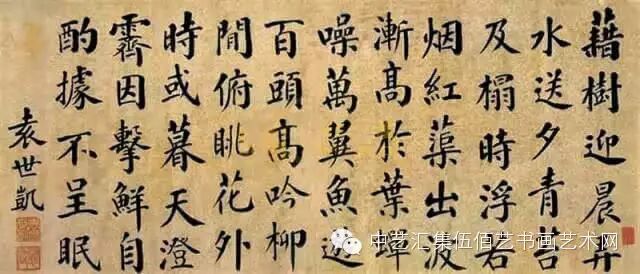 藉樹迎晨
水送夕青
及榻時浮
烟紅蕖出波
漸高於葉蟬
噪萬翼魚遊
百頭高吟柳
閒俯眺花外
時或暮天澄
霽因擊鮮自
酌據不呈眠
袁世凱
中艺汇集伍佰艺书画艺术网